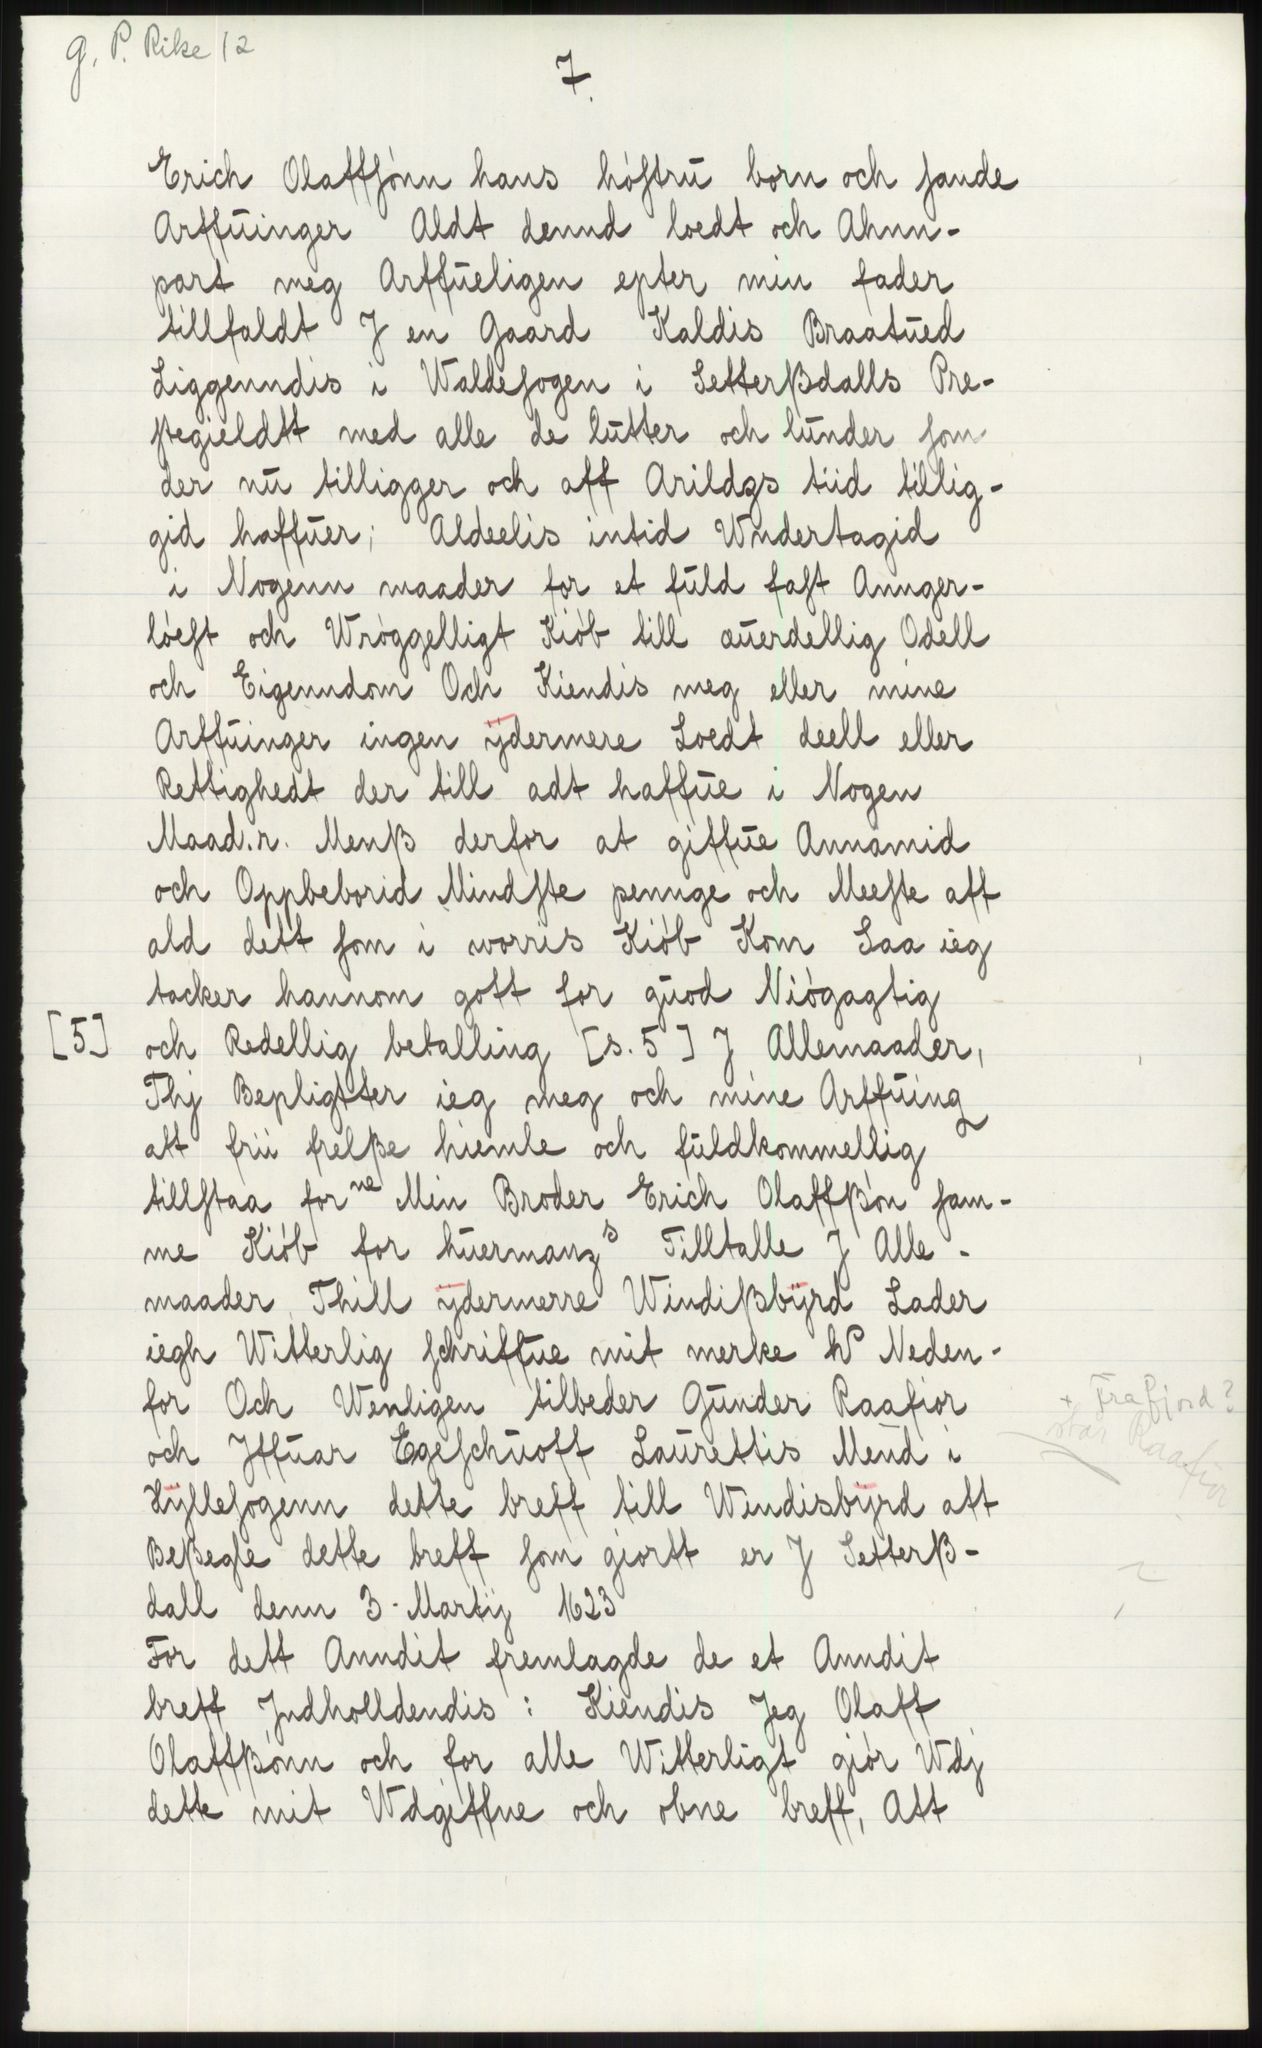 G. P. Rike 12
7.
Erich Olaffsönn hans höstru born och sande
Arffuinger Aldt dennd loedt och Ahnn-
part meg Arffueligen epter min fader
tillfaldt J en Gaard Kaldis Braatued
Liggenndis i Waldesogen i Setterßdalls Pre-
stegieldtt med alle de lutter och lunder som
der nu tilligger och aff Arildgs tiid tillig-
gid haffuer; Aldeelis intid Wndertagid
i Nogenn maader for et fuld fast Annger-
löest och Wröggelligt Kiöb till æuerdellig Odell
och Eigenndom Och Kiendis meg eller mine
Arffuinger ingen ÿdermere Loedt deell eller
Rettighedt der till adt haffue i Nogen
Maad.r. Menß derfor at giffue Annamid
och Oppbeborid Mindste pennge och Meeste aff
ald dett som i worris Kiöb Kom Saa ieg
tacker hannom gott for guod Niögagtig
[5] och Redellig betalling [s. 5] J Allemaader,
Thj Bepligtter ieg meg och mine Arffuing
att frii frelße hiemle och fuldkommellig
tillstaa forne Min Broder Erich Olaffßön sam-
me Kiöb for huermanzs Tilltalle J Alle-
maader, Thill ÿdermerre Windißbÿrd Lader
iegh Witterlig schriffue mit merke Neden-
for Och Wenligen tilbeder Gunder Raafior
+ Frafjord?
står Raafior
och Jffuar Egeschuoff Laurettis Mend i
Hÿllesogenn dette breff till Windisbÿrd att
Beßegle dette breff som giortt er J Setterß-
dall denn 3. Martij 1623
For dett Anndit fremlagde de et Anndit
breff Jndholldendis: Kiendis Jeg Olaff
Olaffßönn och for alle Witterligt giör Wdj
dette mit Wdgiffne och obne breff, Att